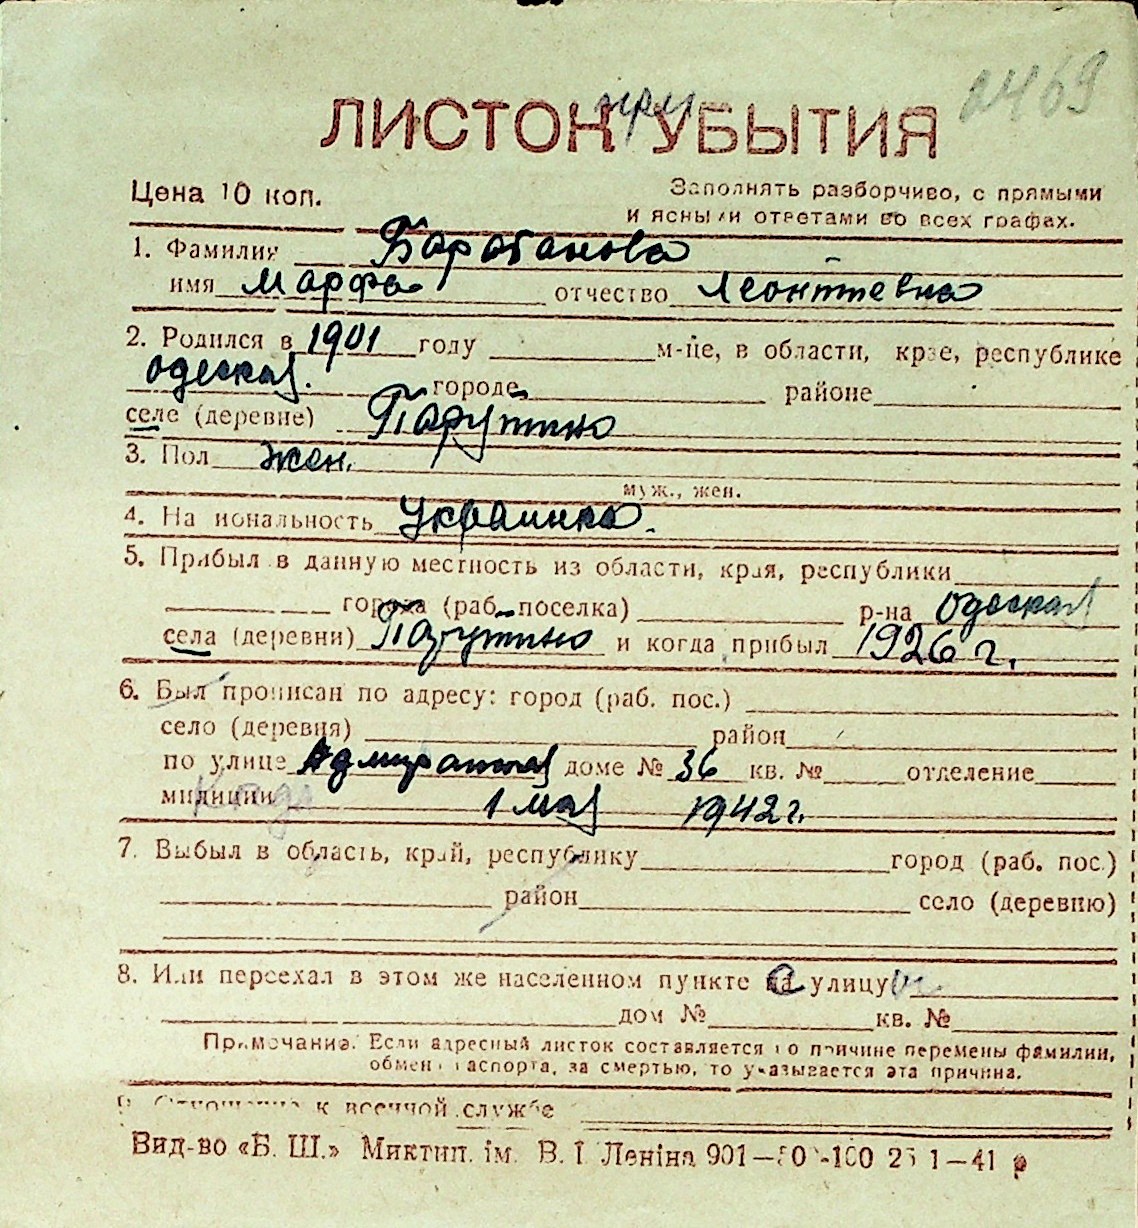 2469
ЛИСТОК при УБЫТИЯ
Цена 10 коп.
Заполнять разборчиво, с прямыми
и ясными ответами во всех графах.
1. Фамилия Барабанова
имя Марфа отчество Леонтьевна
2. Родился в 1901 году м-це, в области, крае, республике
одеская. городе районе
селе (деревне) Парутино
3. Пол жен.
муж., жен.
4. Национальность Украинка.
5. Прибыл в данную местность из области, края, республики
города (раб. поселка) р-на одеская
села (деревни) Парутино и когда прибыл 1926 г.
6. Был прописан по адресу: город (раб. пос.)
село (деревня) район
по улице доме № 36 кв. № отделение
милиции 1 мая 1942 г.
7. Выбыл в область, край, республику город (раб. пос.)
район село (деревню)
8. Или переехал в этом же населенном пункте с улицу
дом № кв. №
Примечание. Если адресный листок составляется по причине перемены фамилии,
обмена паспорта, за смертью, то указывается эта причина.
9. Отношение к военной службе
Вид-во «Б. Ш.» Миктип. ім. В. І. Леніна 901—50 -100 25 1—41 р